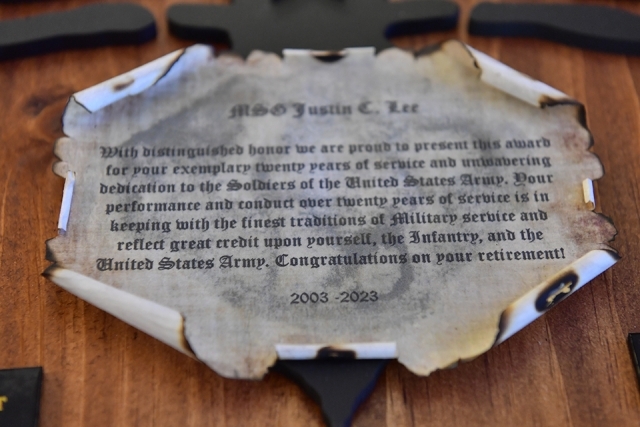 MSG Justin C. Lee
With distinguished honor we are proud to present this award
for your exemplary twenty years of service and unwavering
dedication to the Soldiers of the United States Army. Your
performance and conduct over twenty years of service is in
keeping with the finest traditions of Military service and
reflect great credit upon yourself, the Infantry, and the
United States Army. Congratulations on your retirement!
2003 -2023